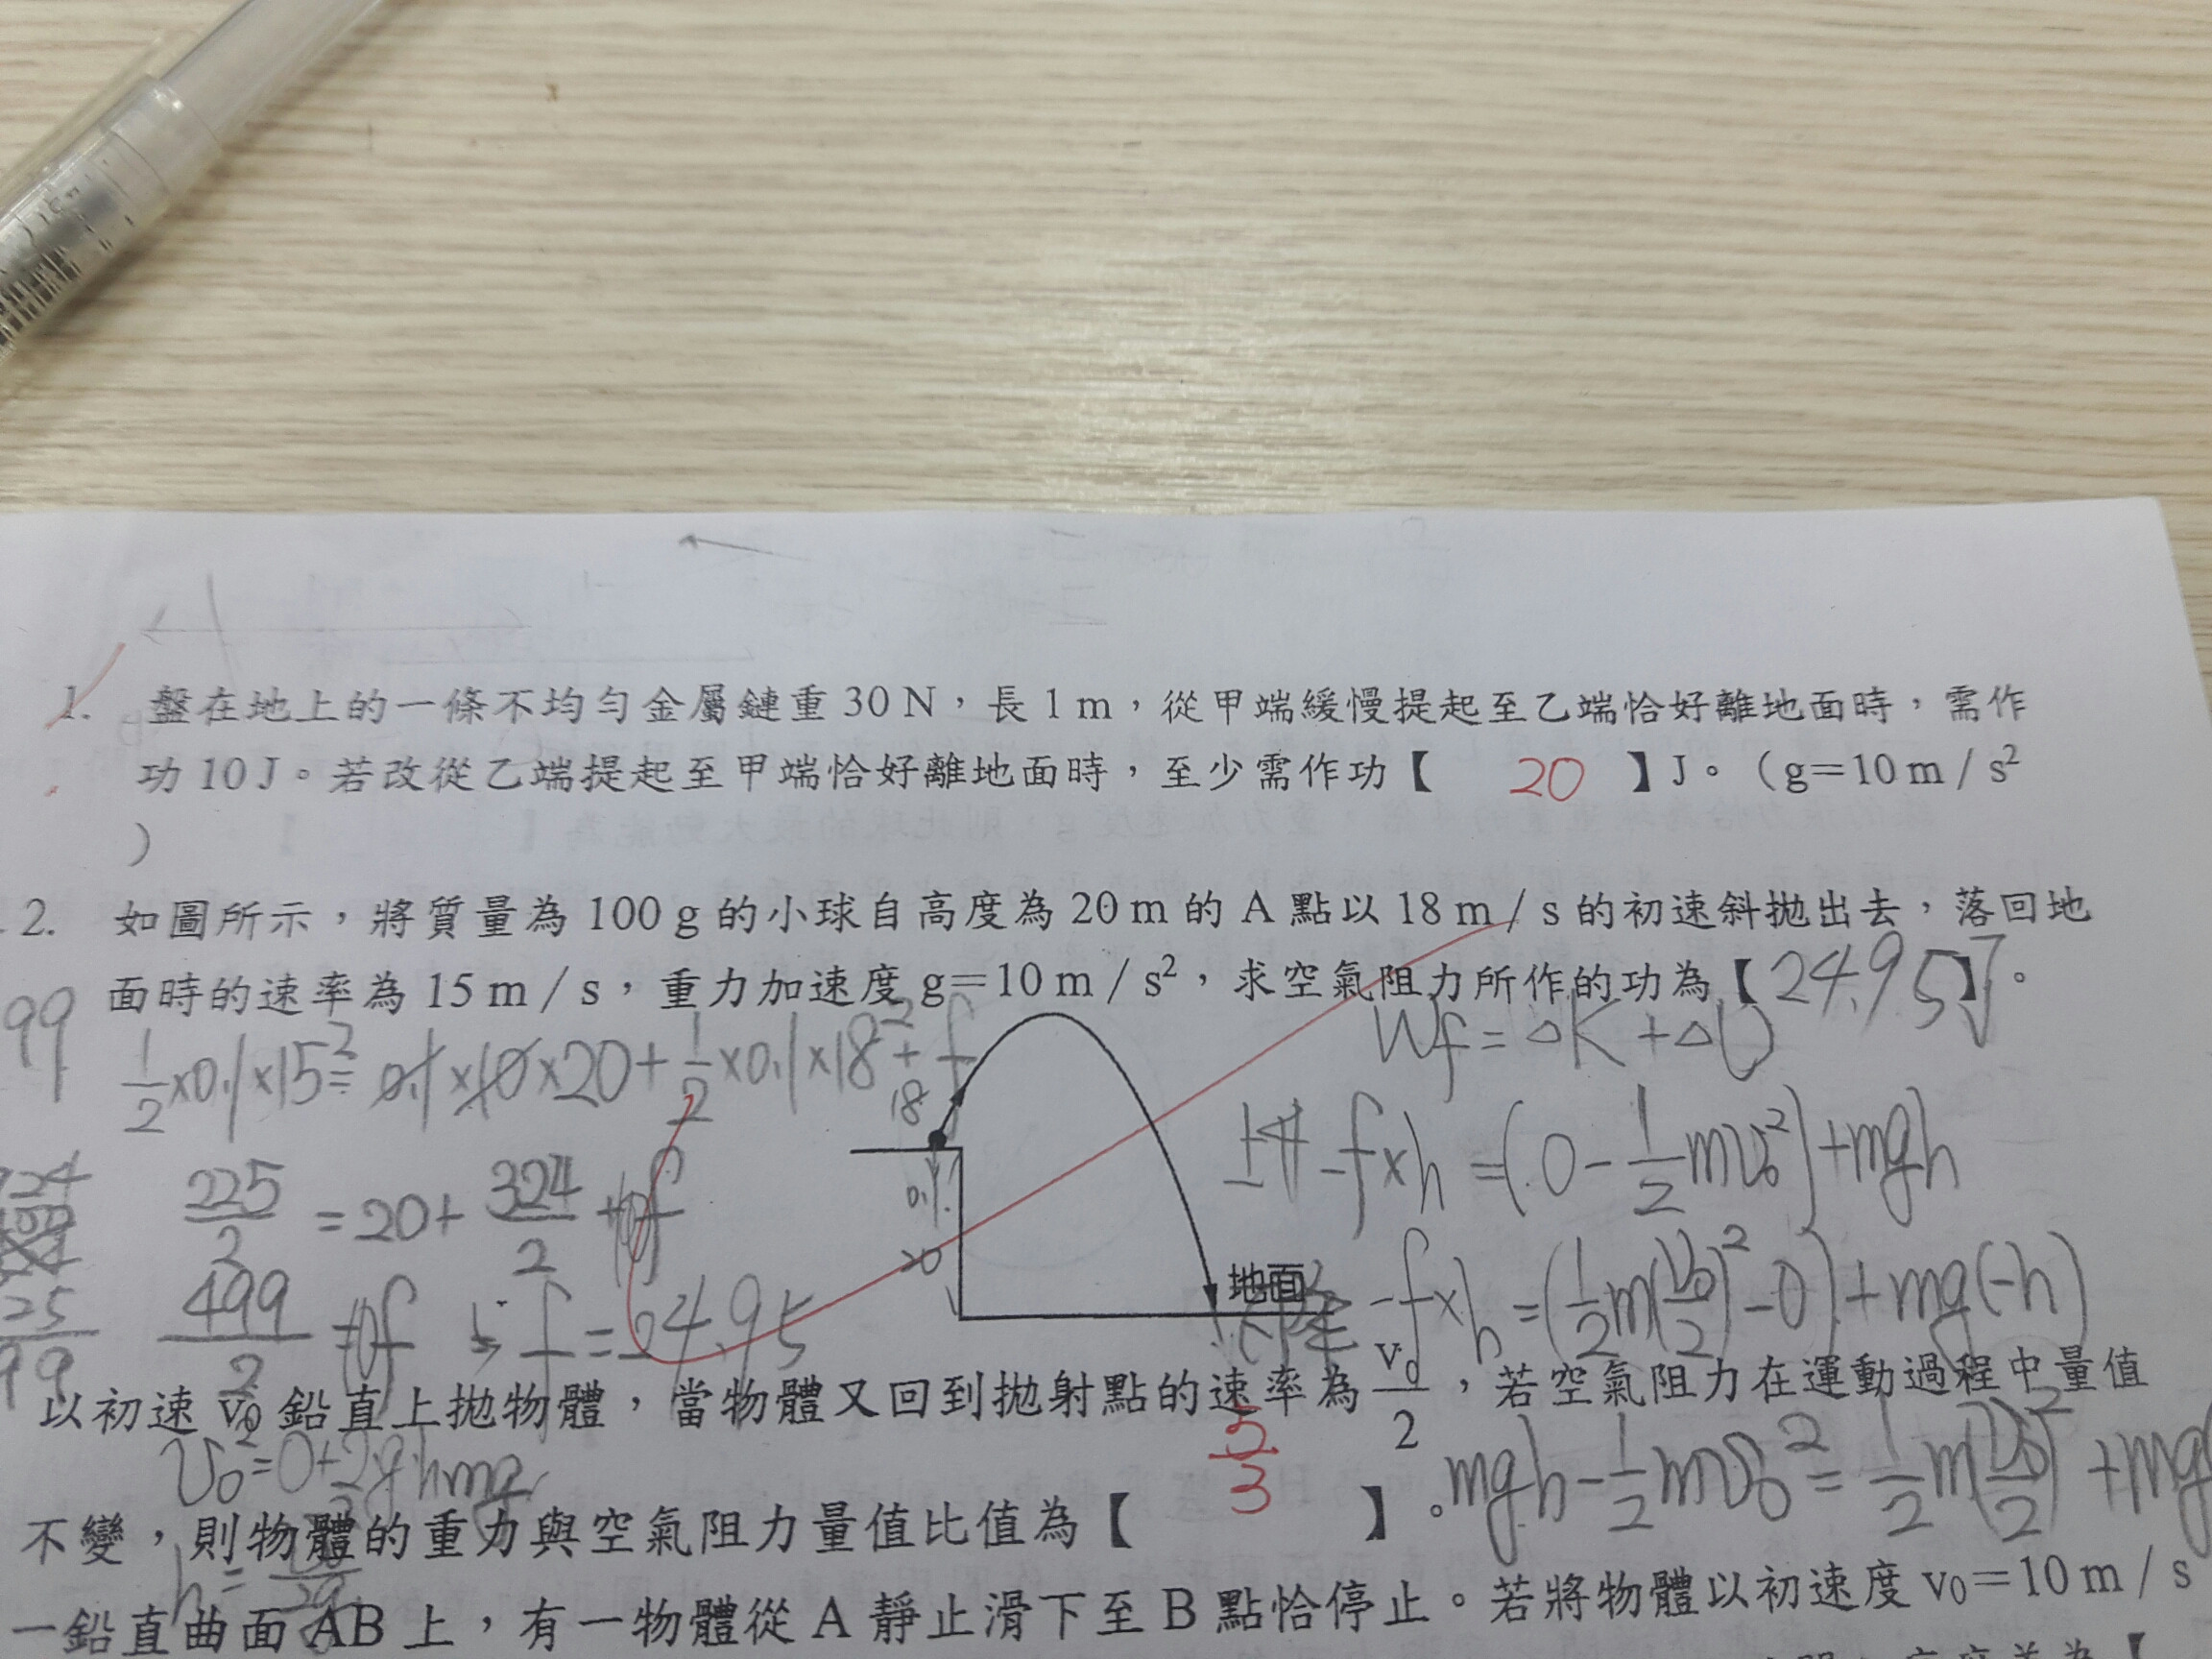 1. 盤在地上的一條不均勻金屬鏈重 30 N，長 1 m，從甲端緩慢提起至乙端恰好離地面時，需作
功 10 J。若改從乙端提起至甲端恰好離地面時，至少需作功【 20 】J。（g＝10 m / s²
）
2. 如圖所示，將質量為 100 g 的小球自高度為 20 m 的 A 點以 18 m / s 的初速斜拋出去，落回地
面時的速率為 15 m / s，重力加速度 g＝10 m / s²，求空氣阻力所作的功為【24.95J】。
99
Wf = △K + △U
1/2 ×0.1×15² = 0.1×10×20 + 1/2 ×0.1×18² + f
18
升 -f×h = (0 - 1/2 mv₀²) + mgh
225/2 = 20 + 324/2 + 10f
20
地面
-f×h = (1/2 m(v₀/2)² - 0) + mg(-h)
499/2 = 10f f = 24.95
25
99
以初速 v₀ 鉛直上拋物體，當物體又回到拋射點的速率為 v₀/2，若空氣阻力在運動過程中量值
v₀² = 0 + 2gh
mgh - 1/2 mv₀² = 1/2 m(v₀/2)² + mg
不變，則物體的重力與空氣阻力量值比值為【 5/3 】。
h =
一鉛直曲面 AB 上，有一物體從 A 靜止滑下至 B 點恰停止。若將物體以初速度 v₀＝10 m / s